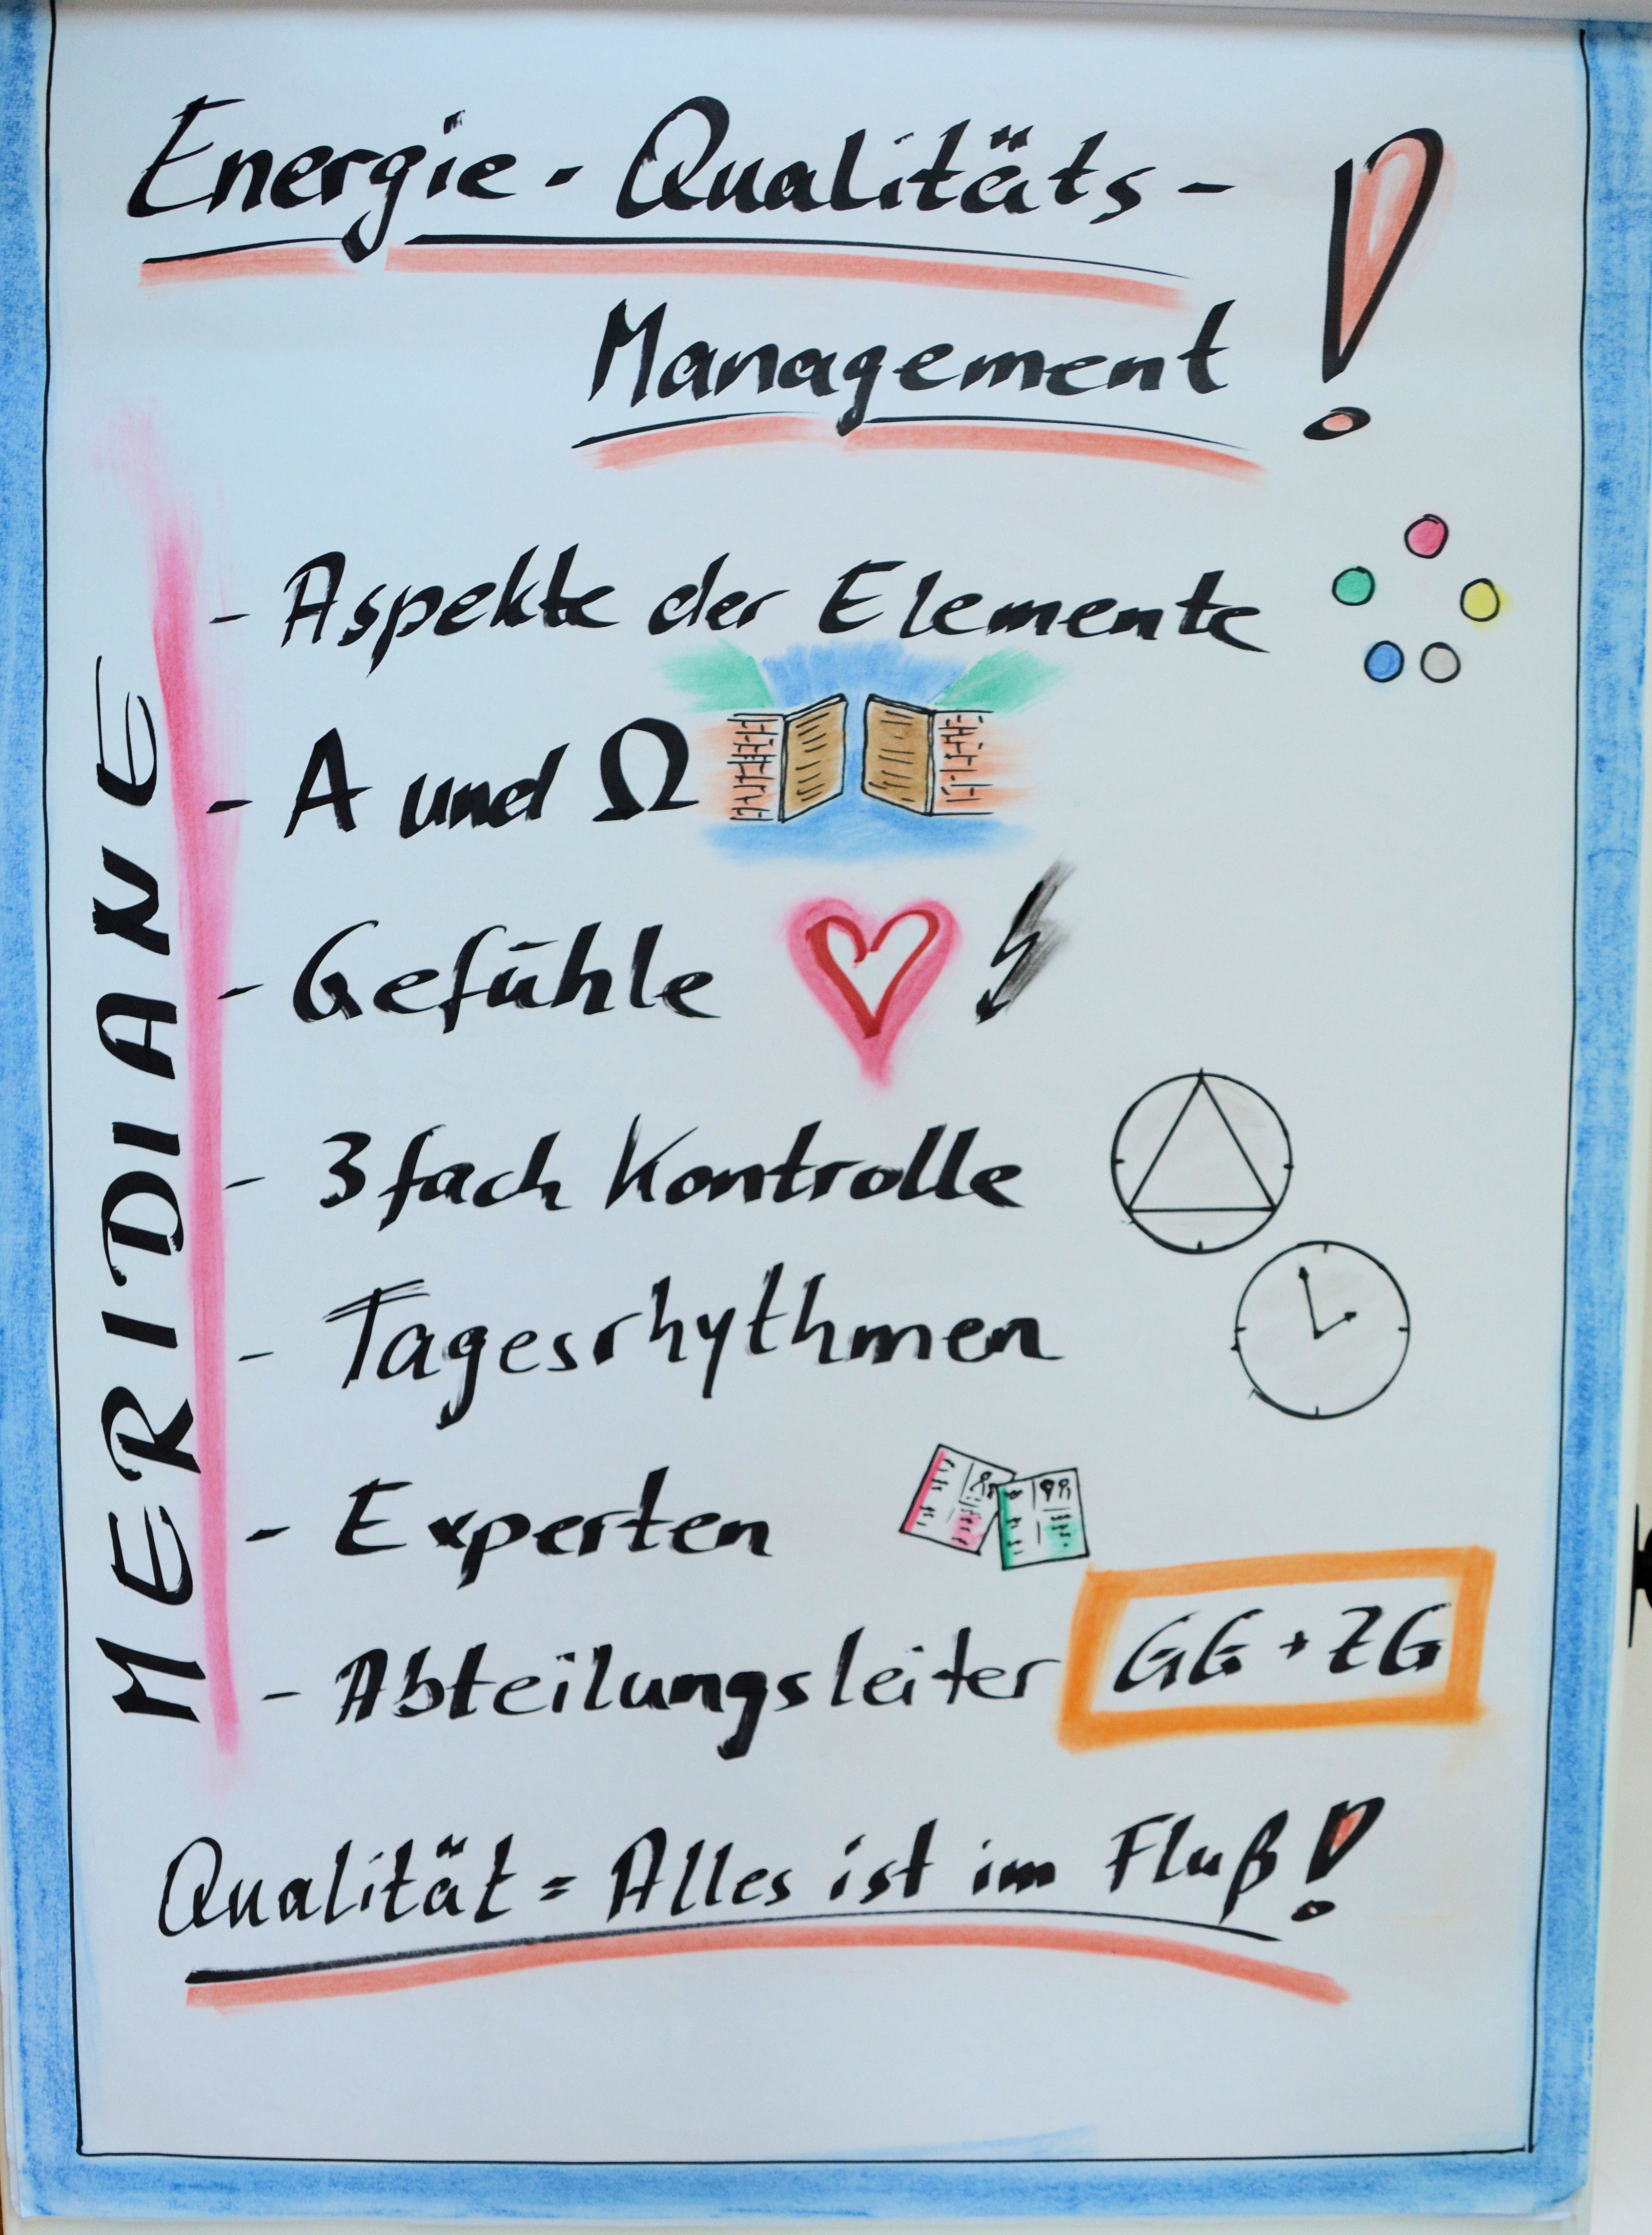 Energie-Qualitäts-
Management!
MERIDIANE
- Aspekte der Elemente
- A und Ω
- Gefühle
- 3fach Kontrolle
- Tagesrhythmen
- Experten
- Abteilungsleiter GG + ZG
Qualität = Alles ist im Fluß!